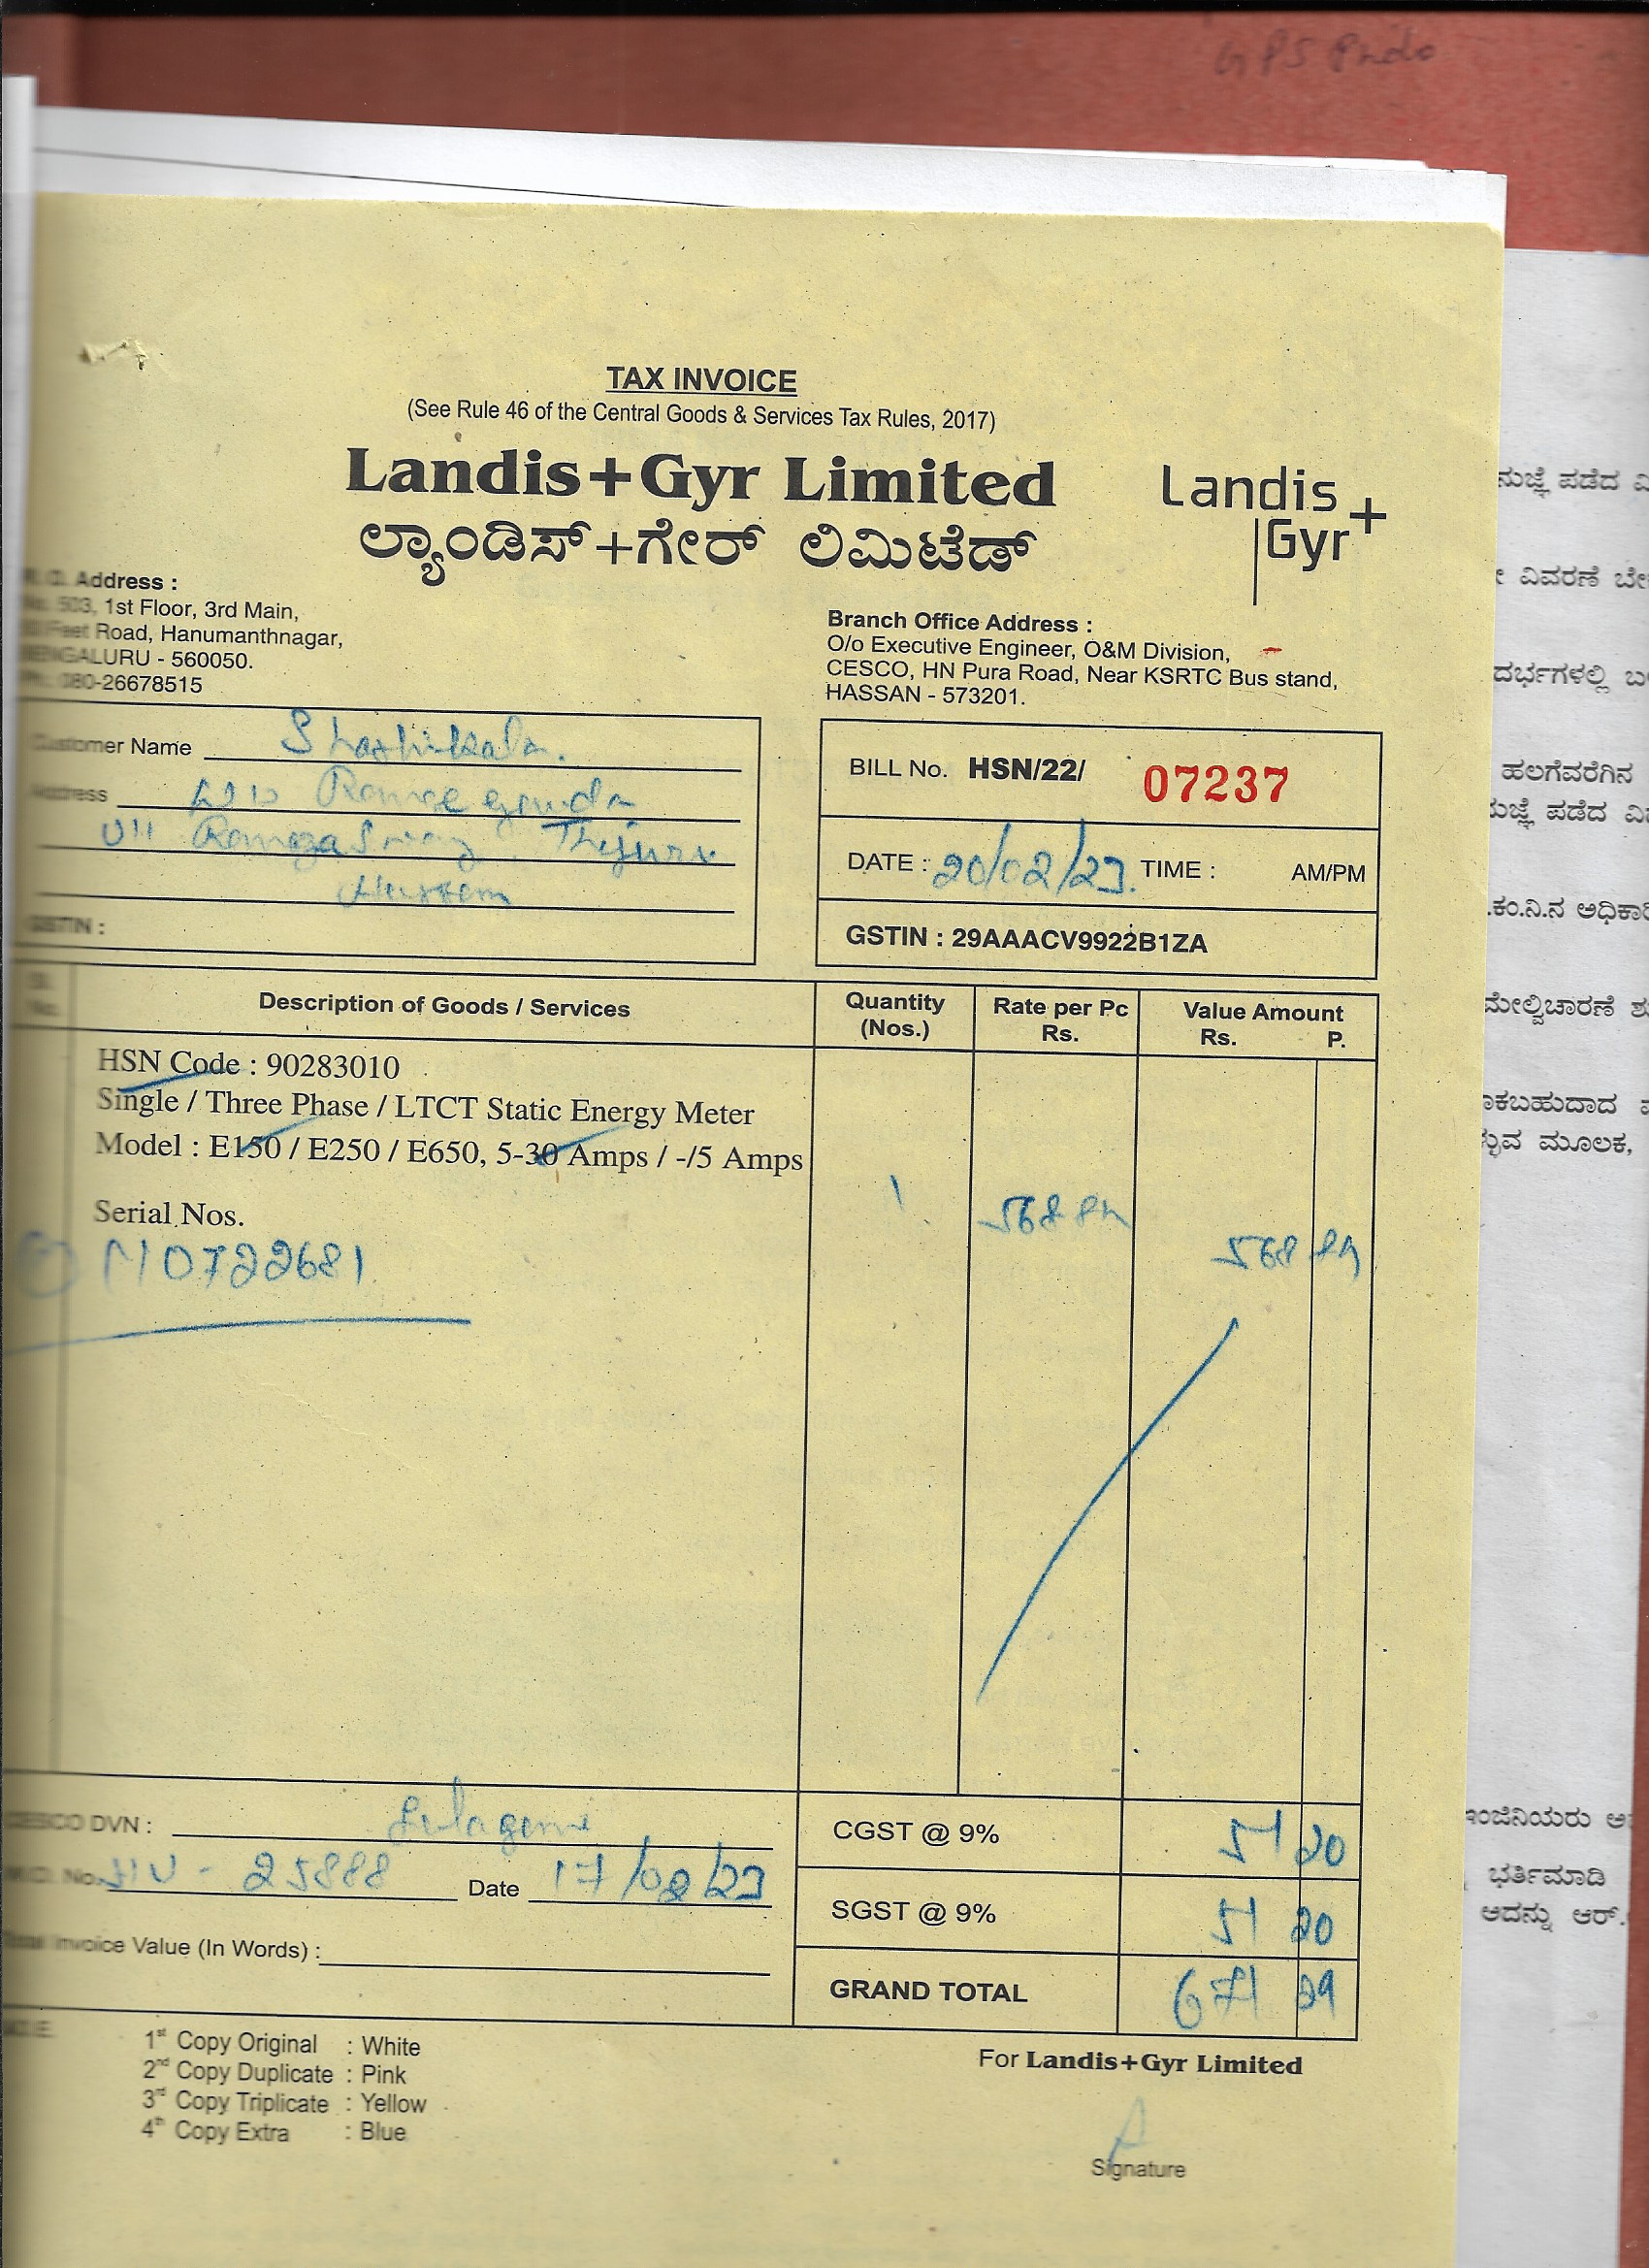 GPS
TAX INVOICE
(See Rule 46 of the Central Goods & Services Tax Rules, 2017)
Landis+Gyr Limited
ಲ್ಯಾಂಡಿಸ್+ಗೇರ್ ಲಿಮಿಟೆಡ್
Landis
Gyr+
Address :
503, 1st Floor, 3rd Main,
Feet Road, Hanumanthnagar,
BENGALURU - 560050.
Ph: 080-26678515
Branch Office Address :
O/o Executive Engineer, O&M Division,
CESCO, HN Pura Road, Near KSRTC Bus stand,
HASSAN - 573201.
Customer Name Shashikala.
Address
Thejuru
Hassan
GSTIN :
BILL No. HSN/22/ 07237
DATE : 20/02/23. TIME : AM/PM
GSTIN : 29AAACV9922B1ZA
Sl. No.
Description of Goods / Services
Quantity (Nos.)
Rate per Pc Rs.
Value Amount Rs. P.
HSN Code : 90283010
Single / Three Phase / LTCT Static Energy Meter
Model : E150 / E250 / E650, 5-30 Amps / -/5 Amps
Serial Nos.
1 568 89 568 89
N0722681
CESCO DVN :
25888 Date 17/02/23
Total Invoice Value (In Words) :
CGST @ 9% 51 20
SGST @ 9% 51 20
GRAND TOTAL 671 29
NOTE
1st Copy Original : White
2nd Copy Duplicate : Pink
3rd Copy Triplicate : Yellow
4th Copy Extra : Blue
For Landis+Gyr Limited
Signature
ಪಡೆದ
ವಿವರಣೆ
ಹಲಗೆವರೆಗಿನ
ಪಡೆದ
ಮೇಲ್ವಿಚಾರಣೆ
ಮೂಲಕ,
ಭರ್ತಿಮಾಡಿ
ಅದನ್ನು